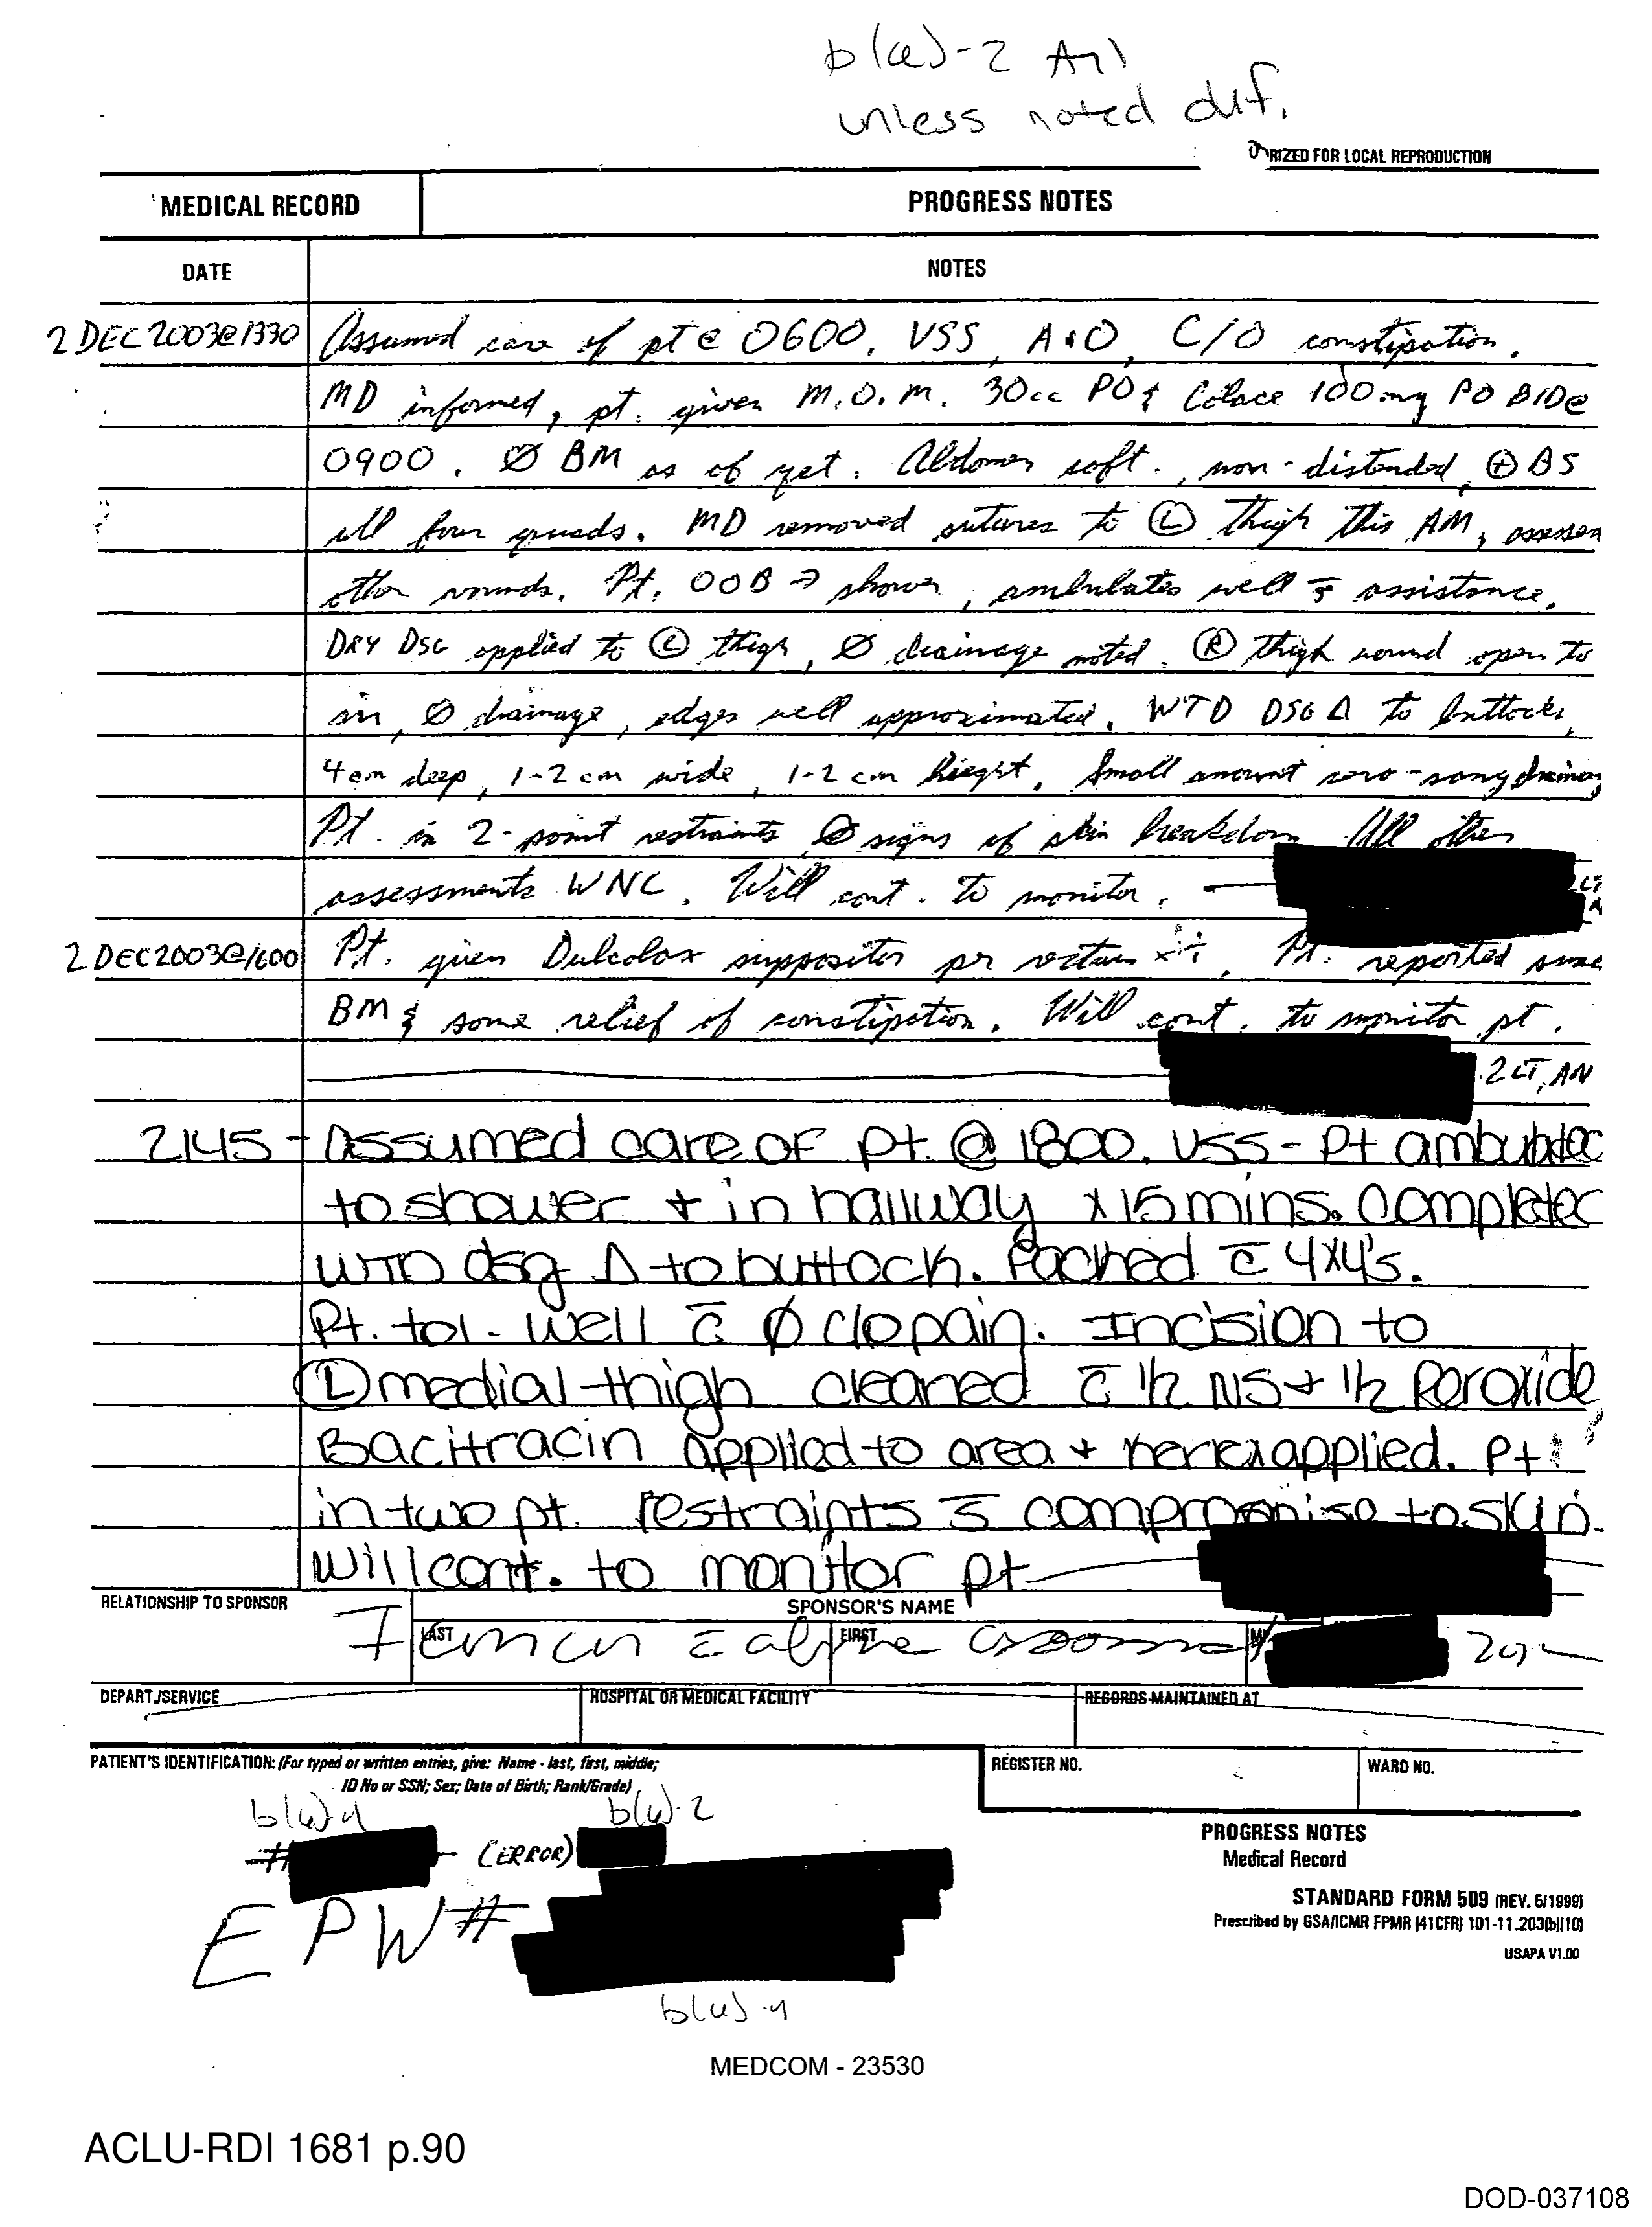 b(6)-2 All
unless noted dif.
RIZED FOR LOCAL REPRODUCTION
MEDICAL RECORD
PROGRESS NOTES
DATE
NOTES
2 DEC 2003@1330 Assumed care of pt @ 0600. VSS, A&O, C/O constipation.
MD informed, pt. given M.O.M. 30cc PO & Colace 100mg PO BID@
0900. Ø BM as of yet. Abdomen soft, non-distended, ⊕ BS
all four quads. MD removed sutures to Ⓛ thigh this AM,
other wounds. Pt. OOB → shower, ambulates well s̄ assistance.
DRY DSG applied to Ⓛ thigh, Ø drainage noted. Ⓡ thigh wound open to
air, Ø drainage, edges well approximated. WTD DSG Δ to buttocks,
4cm deep, 1-2 cm wide, 1-2 cm hieght. Small amount sero-sang drainag
Pt. in 2-point restraints Ø signs of skin breakdown All other
assessments WNL. Will cont. to monitor.
2 DEC 2003@1600 Pt. given Dulcolax suppositor pr rectum x i. Pt. reported some
BM & some relief of constipation. Will cont. to monitor pt.
2LT, AN
2145 - Assumed care of pt. @ 1800. VSS - Pt ambulated
to shower + in hallway x 15 mins. Completed
WTD dsg Δ to buttock. Packed c̄ 4x4's.
Pt. tol. well c̄ Ø c/o pain. Incision to
Ⓛ medial thigh cleaned c̄ 1/2 NS + 1/2 Peroxide
Bacitracin applied to area + kerlex applied. Pt
in two pt. restraints s̄ compromise to skin.
Will cont. to monitor pt
RELATIONSHIP TO SPONSOR
SPONSOR'S NAME
LAST
FIRST
DEPART./SERVICE
HOSPITAL OR MEDICAL FACILITY
RECORDS MAINTAINED AT
PATIENT'S IDENTIFICATION: (For typed or written entries, give: Name - last, first, middle;
ID No or SSN; Sex; Date of Birth; Rank/Grade)
REGISTER NO.
WARD NO.
b(6)-4
b(6)-2
# (ERROR)
EPW#
b(6)-4
PROGRESS NOTES
Medical Record
STANDARD FORM 509 (REV. 5/1999)
Prescribed by GSA/ICMR FPMR (41CFR) 101-11.203(b)(10)
USAPA V1.00
MEDCOM - 23530
ACLU-RDI 1681 p.90
DOD-037108